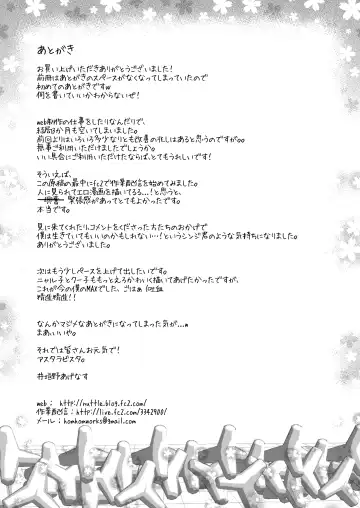 あとがき
お買い上げいただきありがとうございました!
前冊はあとがきのスペースがなくなってしまっていたので
初めてのあとがきですw
何を書いていいかわからないぜ!
web制作の仕事をしたりなんだりで、
結局8か月も空いてしまいました。
前回よりはいろいろ多少なりとも改善の兆しはあると思うのですが。。
無事ご利用いただけましたでしょうか。
いい具合にご利用いただけたならば、とてもうれしいです!
そういえば、
この原稿の最中にfc2で作業配信を始めてみました。
人に見られてエロ漫画を描いてる…!と思うと、
緊張感があってとてもよかったです。
本当です。
見に来てくれたり、コメントをくださった方たちのおかげで
僕は生きていてもいいのかもしれない…!というシンジ君のような気持ちになりました。
ありがとうございました。
次はもう少しペースを上げて出したいです。
ニャル子とクー子ももっとえろかわいく描いてあげたかったですが、
これが今の僕のMAXでした、ごはぁ(吐血
精進精進!!
なんかマジメなあとがきになってしまった気が...w
まあいいや。
それでは皆さんお元気で!
アスタラビスタ。
あげなす
web: http://nuttle.blog.fc2.com/
作業配信: http://live.fc2.com/3342908/
メール: homhomworks@gmail.com